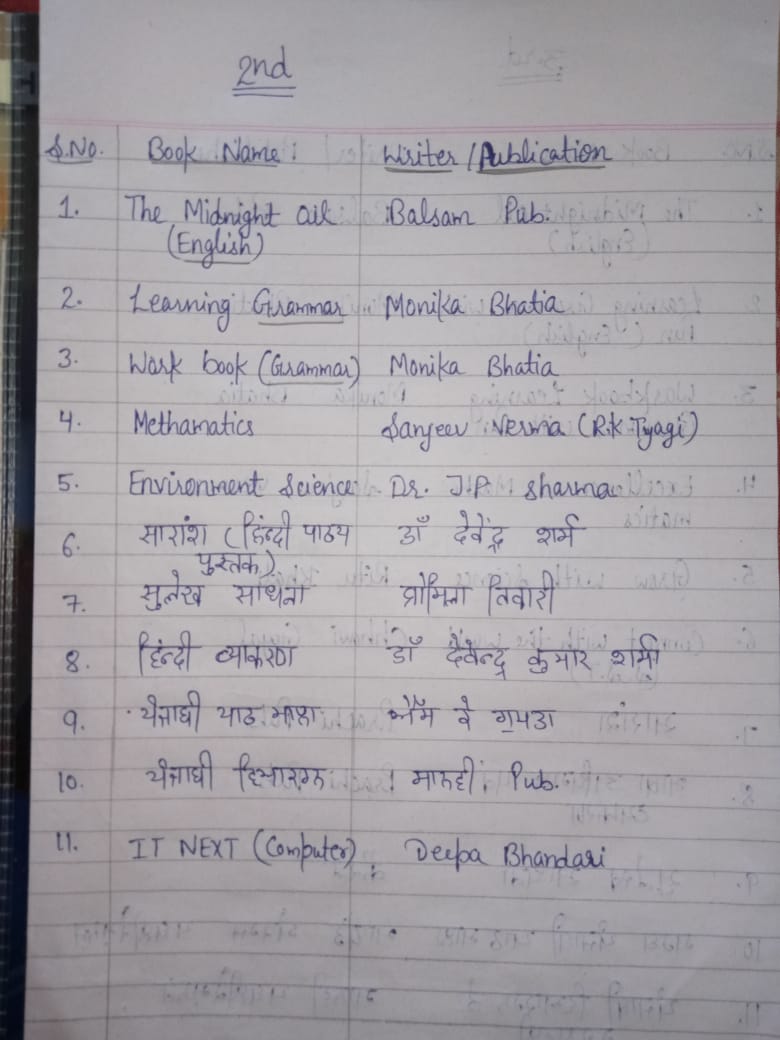 2nd
S.No. Book Name: Writer / Publication
1. The Midnight oil Balsam Pub.
(English)
2. Learning Grammar Monika Bhatia
3. Work book (Grammar) Monika Bhatia
4. Methamatics Sanjeev Verma (R.K Tyagi)
5. Environment Science Dr. J.P. Sharma
6. सारांश (हिन्दी पाठय डॉ देवेंद्र शर्म
पुस्तक)
7. सुलेख साधना तिवारी
8. हिन्दी व्याकरण डॉ देवेन्द्र कुमार शर्मा
9. ਪੰਜਾਬੀ ਪਾਠ ਮਾਲਾ
10. ਪੰਜਾਬੀ Pub.
11. IT NEXT (Computer) Deepa Bhandari